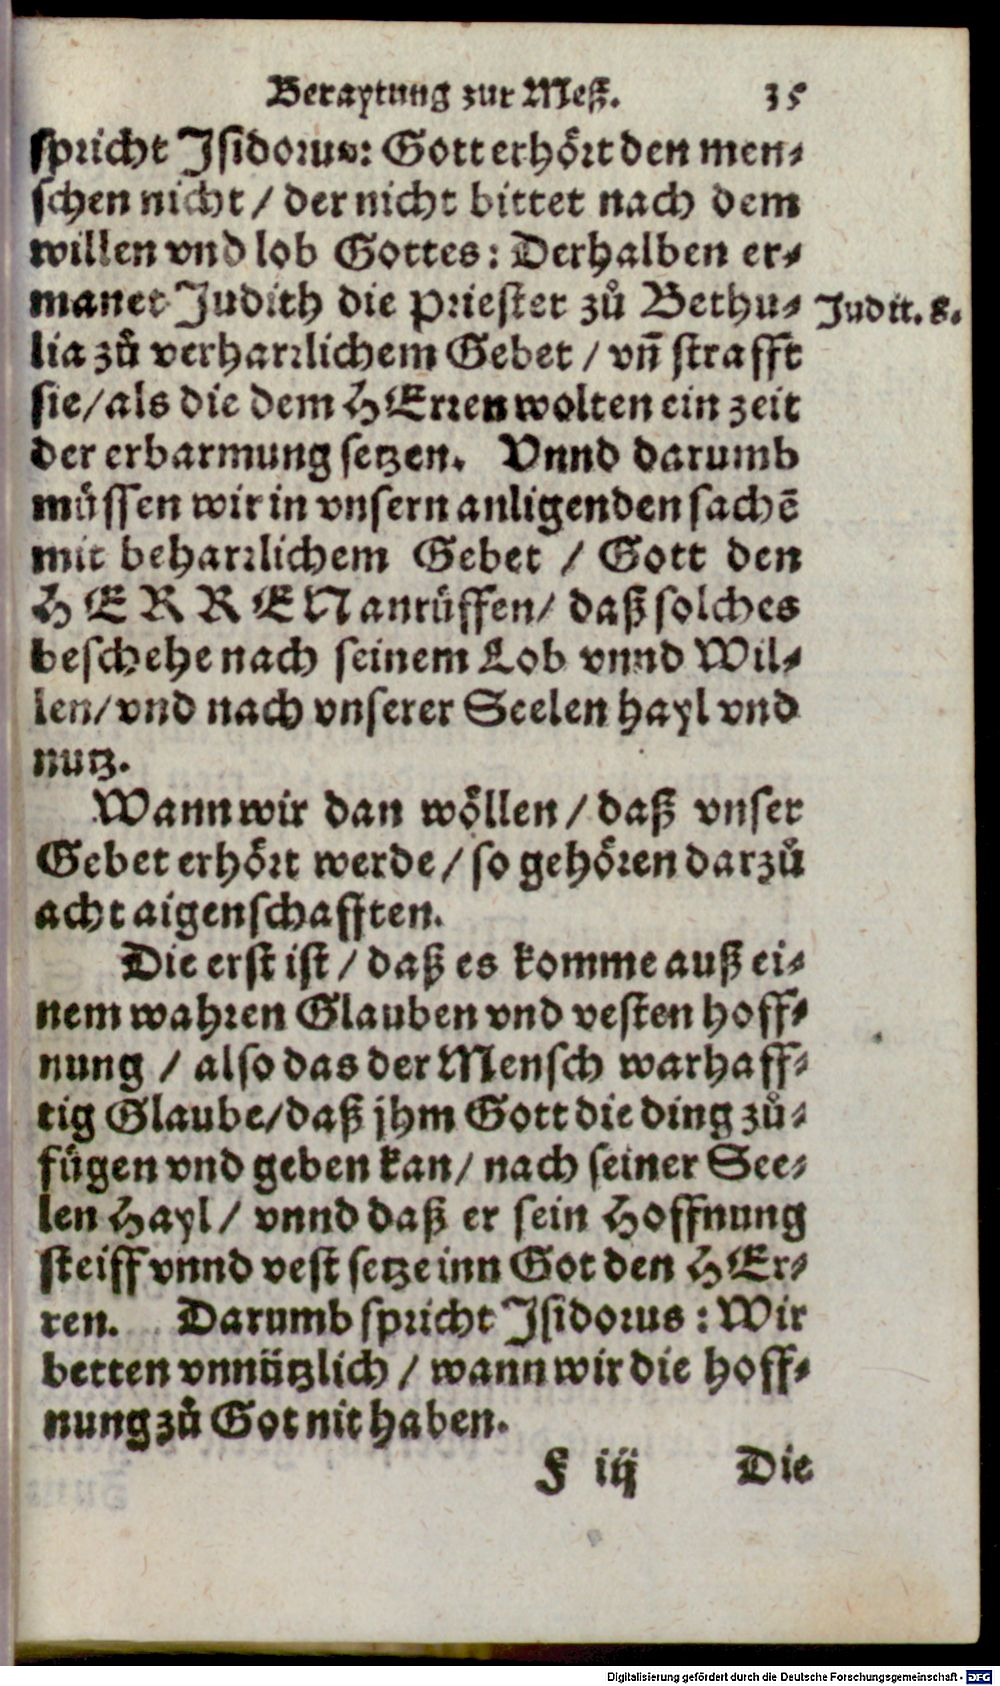 Beraytung zur Meß. 35
spricht Isidorus: Gott erhört den men-
schen nicht / der nicht bittet nach dem
willen vnd lob Gottes: Derhalben er-
manet Judith die Priester zů Bethu- Judit. 8.
lia zů verharrlichem Gebet / vñ strafft
sie / als die dem HErren wolten ein zeit
der erbarmung setzen. Vnnd darumb
müssen wir in vnsern anligenden sachē
mit beharrlichem Gebet / Gott den
HERREN anrüffen / daß solches
beschehe nach seinem Lob vnnd Wil-
len / vnd nach vnserer Seelen hayl vnd
nutz.
Wann wir dan wöllen / daß vnser
Gebet erhört werde / so gehören darzů
acht aigenschafften.
Die erst ist / daß es komme auß ei-
nem wahren Glauben vnd vesten hoff-
nung / also das der Mensch warhaff-
tig Glaube / daß jhm Gott die ding zů-
fügen vnd geben kan / nach seiner See-
len Hayl / vnnd daß er sein Hoffnung
steiff vnnd vest setze inn Got den HEr-
ren. Darumb spricht Isidorus: Wir
betten vnnützlich / wann wir die hoff-
nung zů Got nit haben.
F iij Die
Digitalisierung gefördert durch die Deutsche Forschungsgemeinschaft - DFG